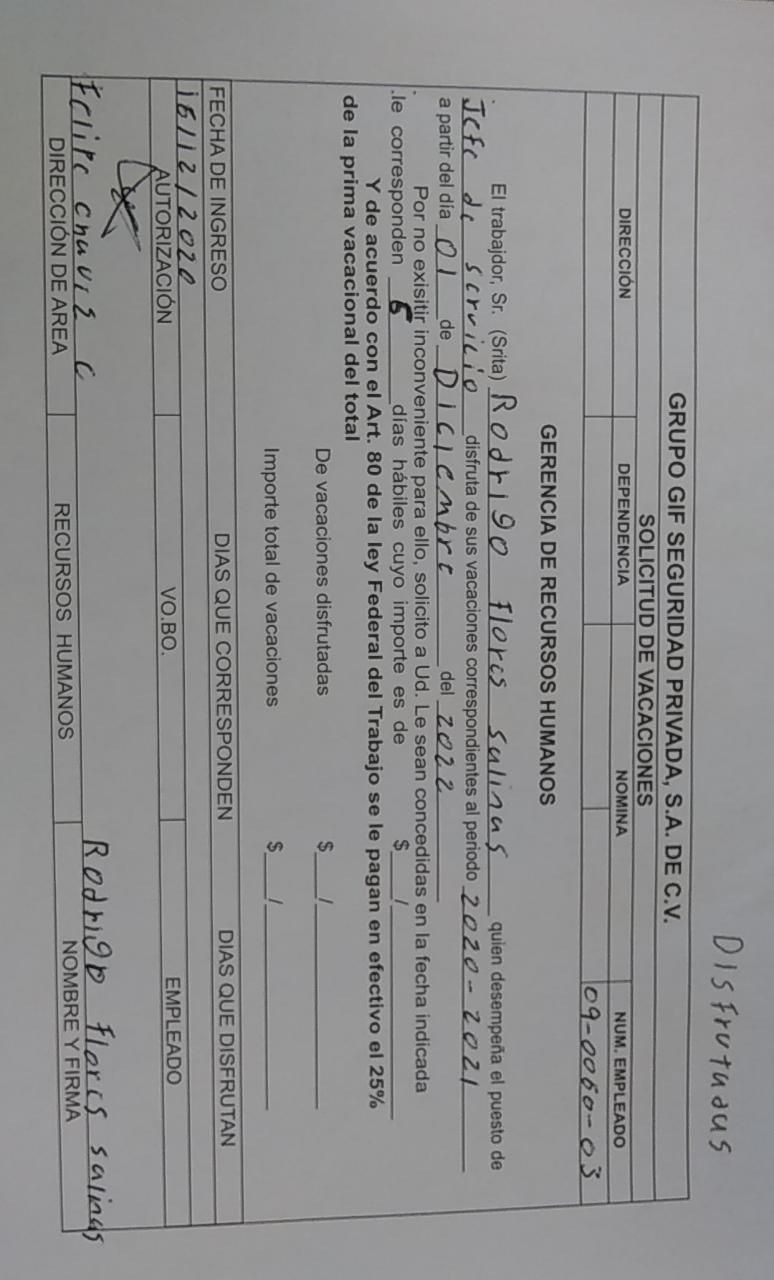 Disfrutadas
GRUPO GIF SEGURIDAD PRIVADA, S.A. DE C.V.
SOLICITUD DE VACACIONES
DIRECCIÓN DEPENDENCIA NOMINA NUM. EMPLEADO
09-0060-03
GERENCIA DE RECURSOS HUMANOS
El trabajdor, Sr. (Srita) Rodrigo Flores salinas quien desempeña el puesto de
Jefe de servicio disfruta de sus vacaciones correspondientes al periodo 2020-2021
a partir del día 01 de Diciembre del 2022
Por no exisitir inconveniente para ello, solicito a Ud. Le sean concedidas en la fecha indicada
.le corresponden 6 días hábiles cuyo importe es de $___/___
Y de acuerdo con el Art. 80 de la ley Federal del Trabajo se le pagan en efectivo el 25%
de la prima vacacional del total
De vacaciones disfrutadas $___/___
Importe total de vacaciones $___/___
FECHA DE INGRESO DIAS QUE CORRESPONDEN DIAS QUE DISFRUTAN
16/12/2020
AUTORIZACIÓN VO.BO. EMPLEADO
Felipe chavez C Rodrigo Flores salinas
DIRECCIÓN DE AREA RECURSOS HUMANOS NOMBRE Y FIRMA